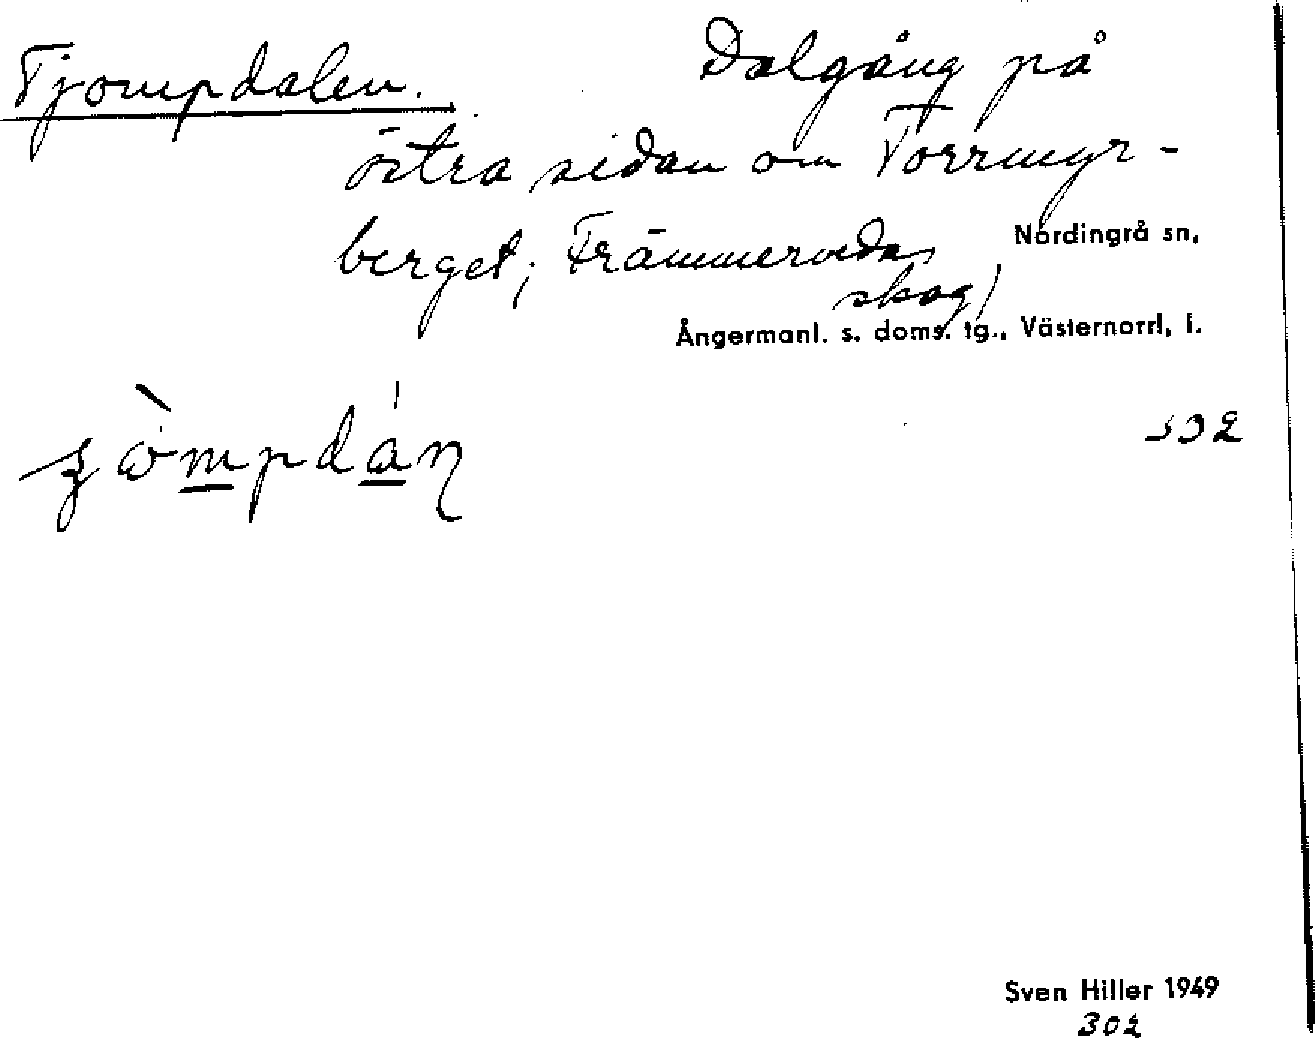 Tjompdalen. Dalgång på
östra sidan om Torrmyr-
berget; Främmerveda
skog
Nordingrå sn,
Ångermanl. s. doms. tg., Västernorrl, l.
302
Sven Hiller 1949
302